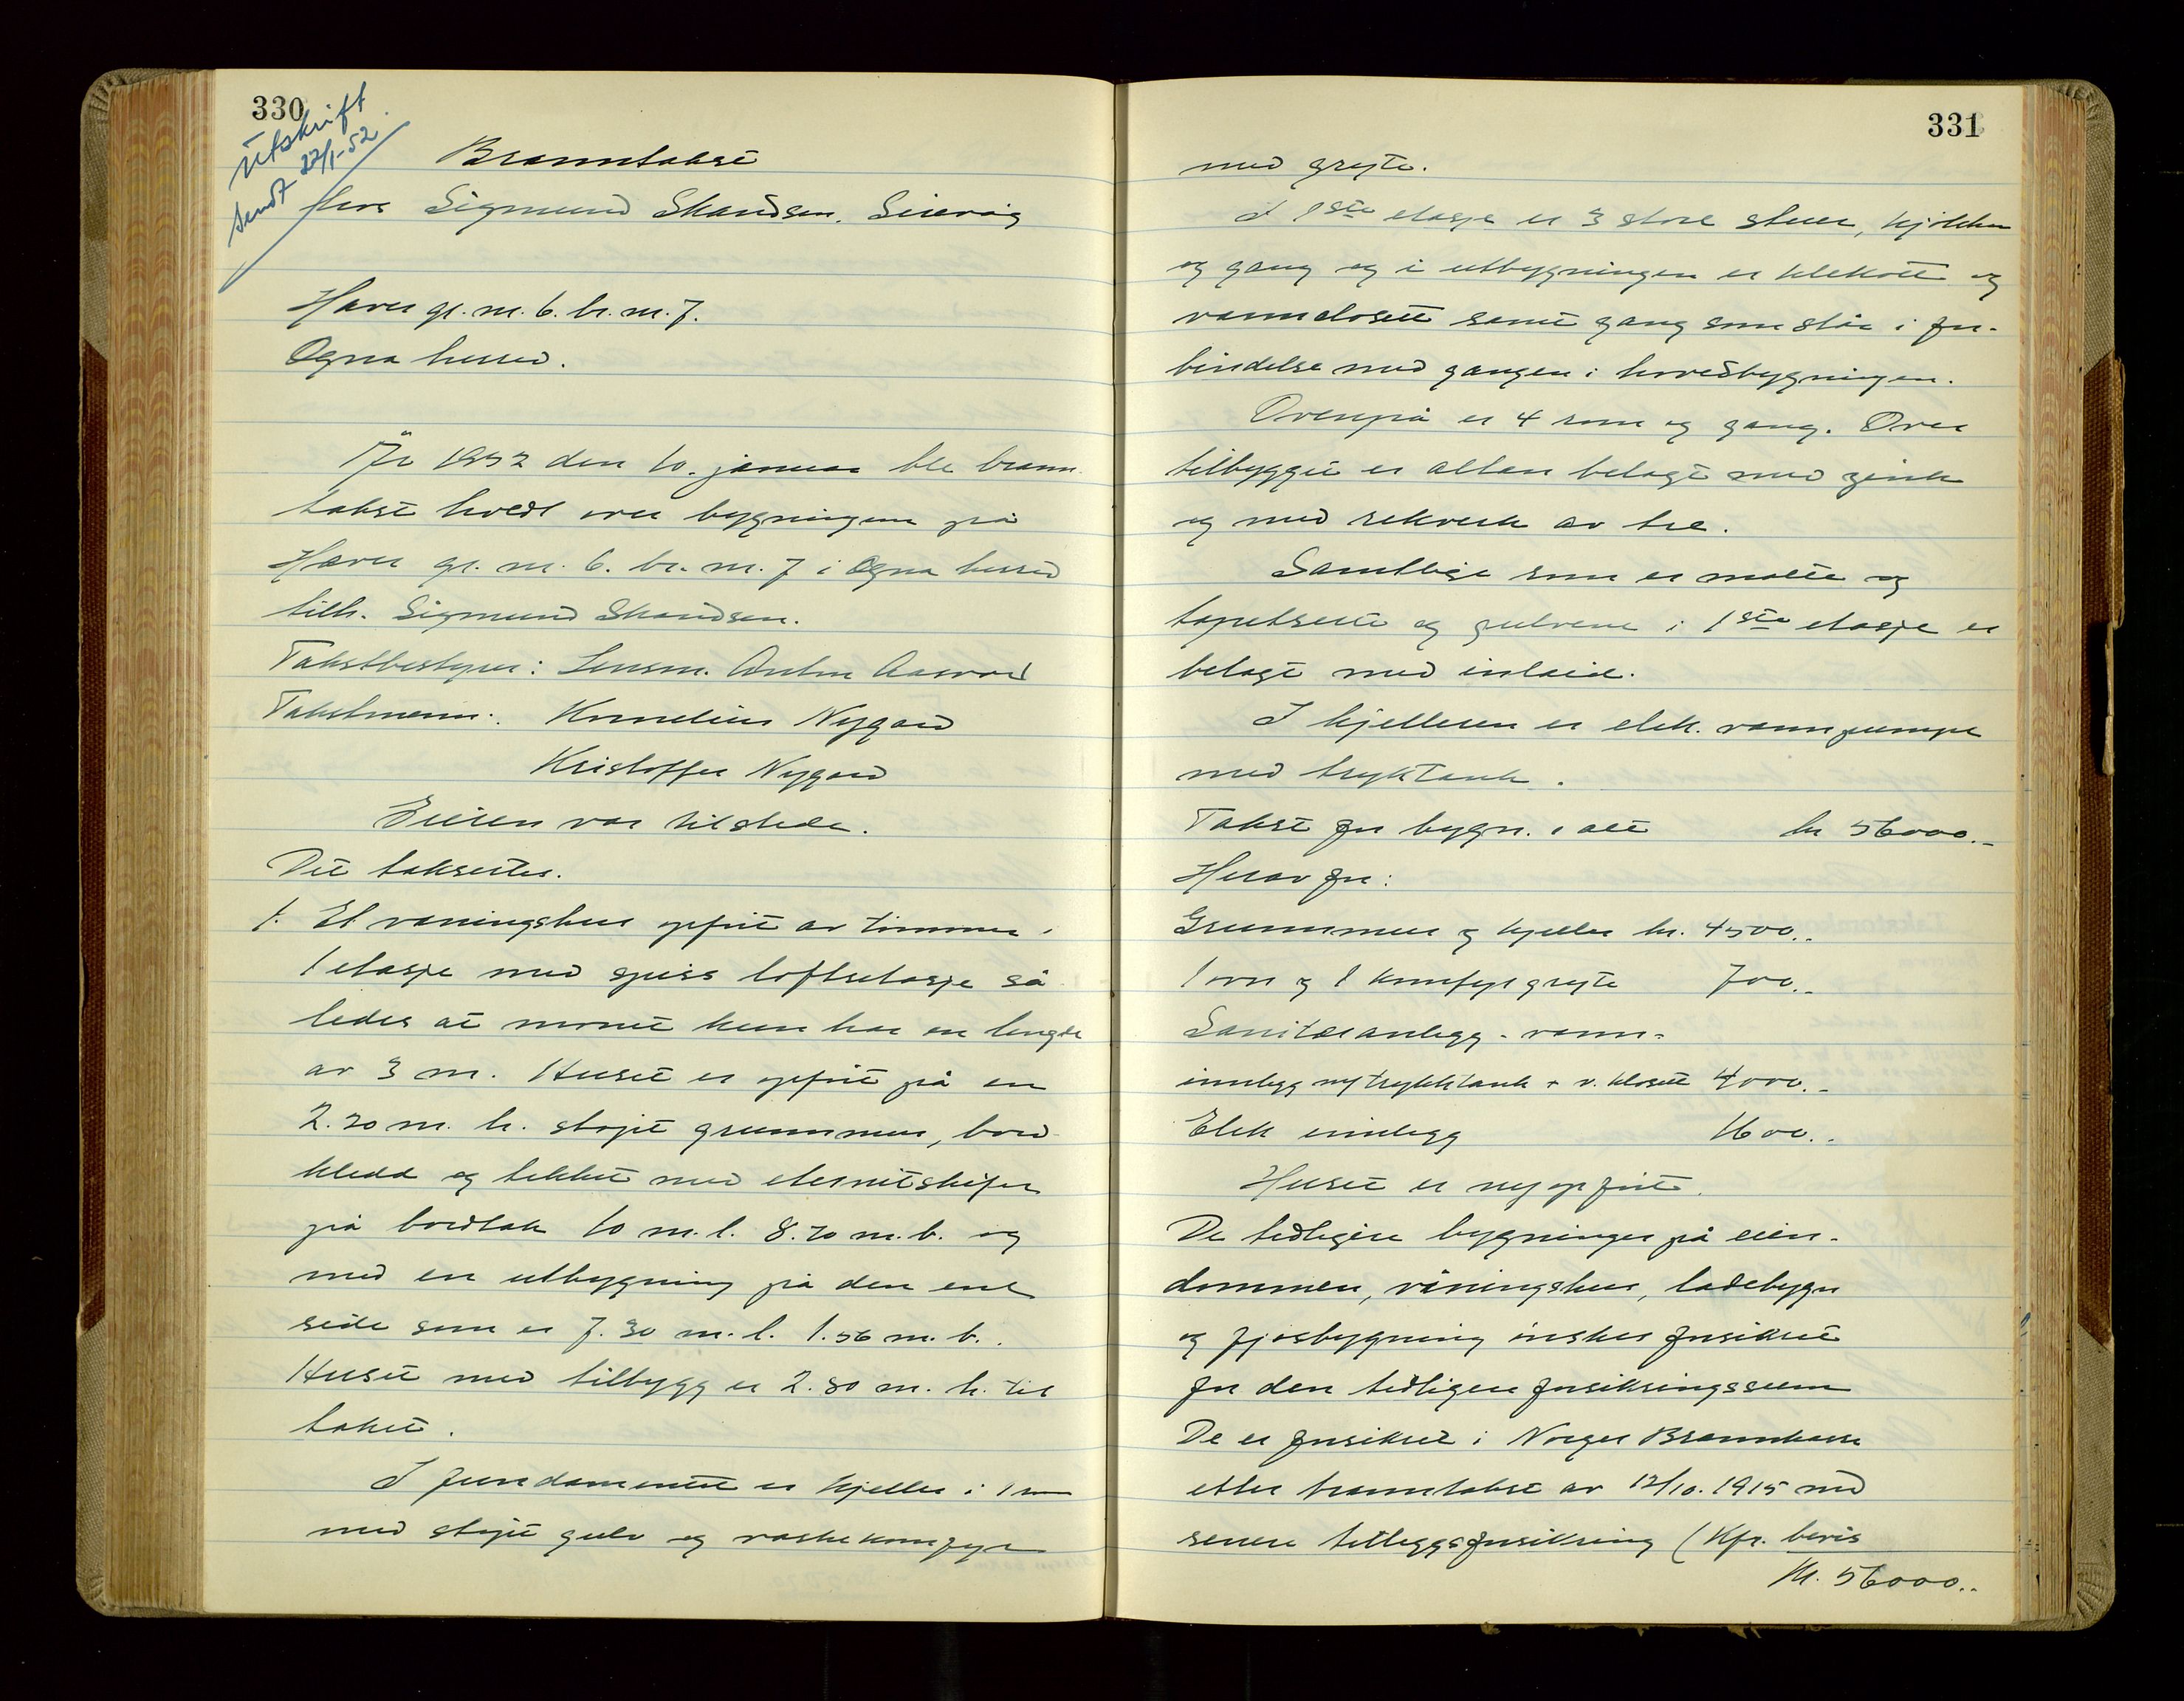 330
Utskrift
sendt 22/1-52.
Branntakst
hos Sigmund Skandsen. Sirevåg
Hæver gr. nr. 6. br. nr. 7.
Ogna herred.
År 1952 den 10. januar ble brann-
takst holdt over bygningene på
Hæver gr. nr. 6. br. nr. 7 i Ogna herred
tilh. Sigmund Skandsen.
Takstbestyrer: Lensm. Anton Aasvad
Takstmenn: Kornelius Nygård
Kristoffer Nygård
Eieren var tilstede.
Det takserte.
1. Et våningshus opført av tømmer i
1 etasje med spiss loftsetasje så
ledes at mønet kun har en lengde
av 3 m. Huset er opført på en
2.20 m. h. støpt grunnmur, bord-
kledd og tekket med eternitskifer
på bordtak 10 m. l. 8.70 m. b. og
med en utbygning på den ene
side som er 7.30 m. l. 1.56 m. b.
Huset med tilbygg er 2.80 m. h. til
taket.
I fundamentet er kjeller i 1 rom
med støpt gulv og vaskekomfyr
331
med grejte.
I 1ste etasje er 3 store stuer, kjøkken
og gang og i utbygningen er klekott og
vannclosett samt gang som står i for-
bindelse med gangen i hovedbygningen.
Ovenpå er 4 rom og gang. Over
tilbygget er altan belagt med zink
og med rekverk av tre.
Samtlige rom er malte og
tapetserte og gulvene i 1ste etasje er
belagt med inlaid.
I kjelleren er elek. vannpumpe
med tryktank.
Takst for bygn. i alt kr 56000.-
Herav for:
Grunnmur og kjeller kr. 4500.-
1 ovn og 1 komfyr grejte 700.-
Sanitæranlegg - vann-
innlegg m/ trykktank + v. klosett 4000.-
Elek innlegg 1600.-
Huset er nyopført.
De tidligere bygninger på eien-
dommen, våningshus, ladebygn
og fjøsbygning ønskes forsikret
for den tidligere forsikringssum
De er forsikret i Norges Brannkasse
etter branntakst av 12/10. 1915 med
senere tilleggsforsikring (Kfr. bevis
kr. 56000.-